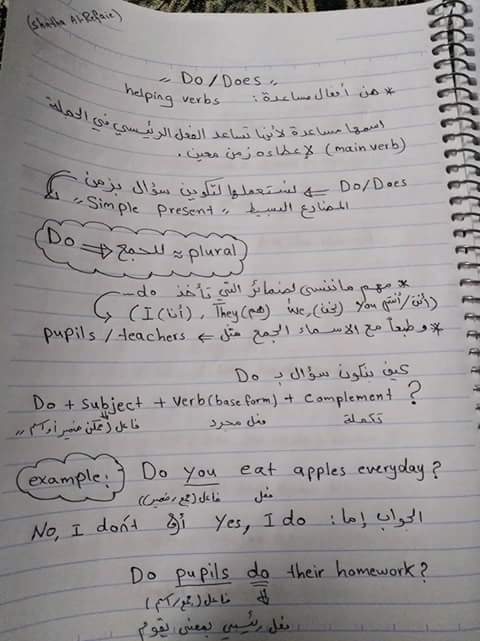 (Shatha Al-Refaie)
" Do / Does "
* هن أفعال مساعدة : helping verbs
اسمها مساعدة لأنها تساعد الفعل الرئيسي في الجملة
(main verb) لإعطاءه زمن معين .
Do/Does ⇐ نستعملها لتكوين سؤال بزمن
المضارع البسيط " Simple Present "
Do ⇒ للجمع ≈ plural
* مهم ماننسى الضمائر التي تأخذ do
(I (أنا) , They (هم) , We (نحن) , You (أنت/أنتي
* وطبعاً مع الاسماء الجمع مثل ← pupils / teachers
كيف بنكون سؤال بـ Do
Do + subject + verb (base form) + complement ?
فاعل (ممكن ضمير أو اسم) فعل مجرد تكملة
example: Do you eat apples everyday?
فاعل (جمع/ضمير) فعل
الجواب إما : Yes, I do أو No, I don't
Do pupils do their homework?
فاعل (جمع/اسم)
فعل رئيسي بمعنى يقوم